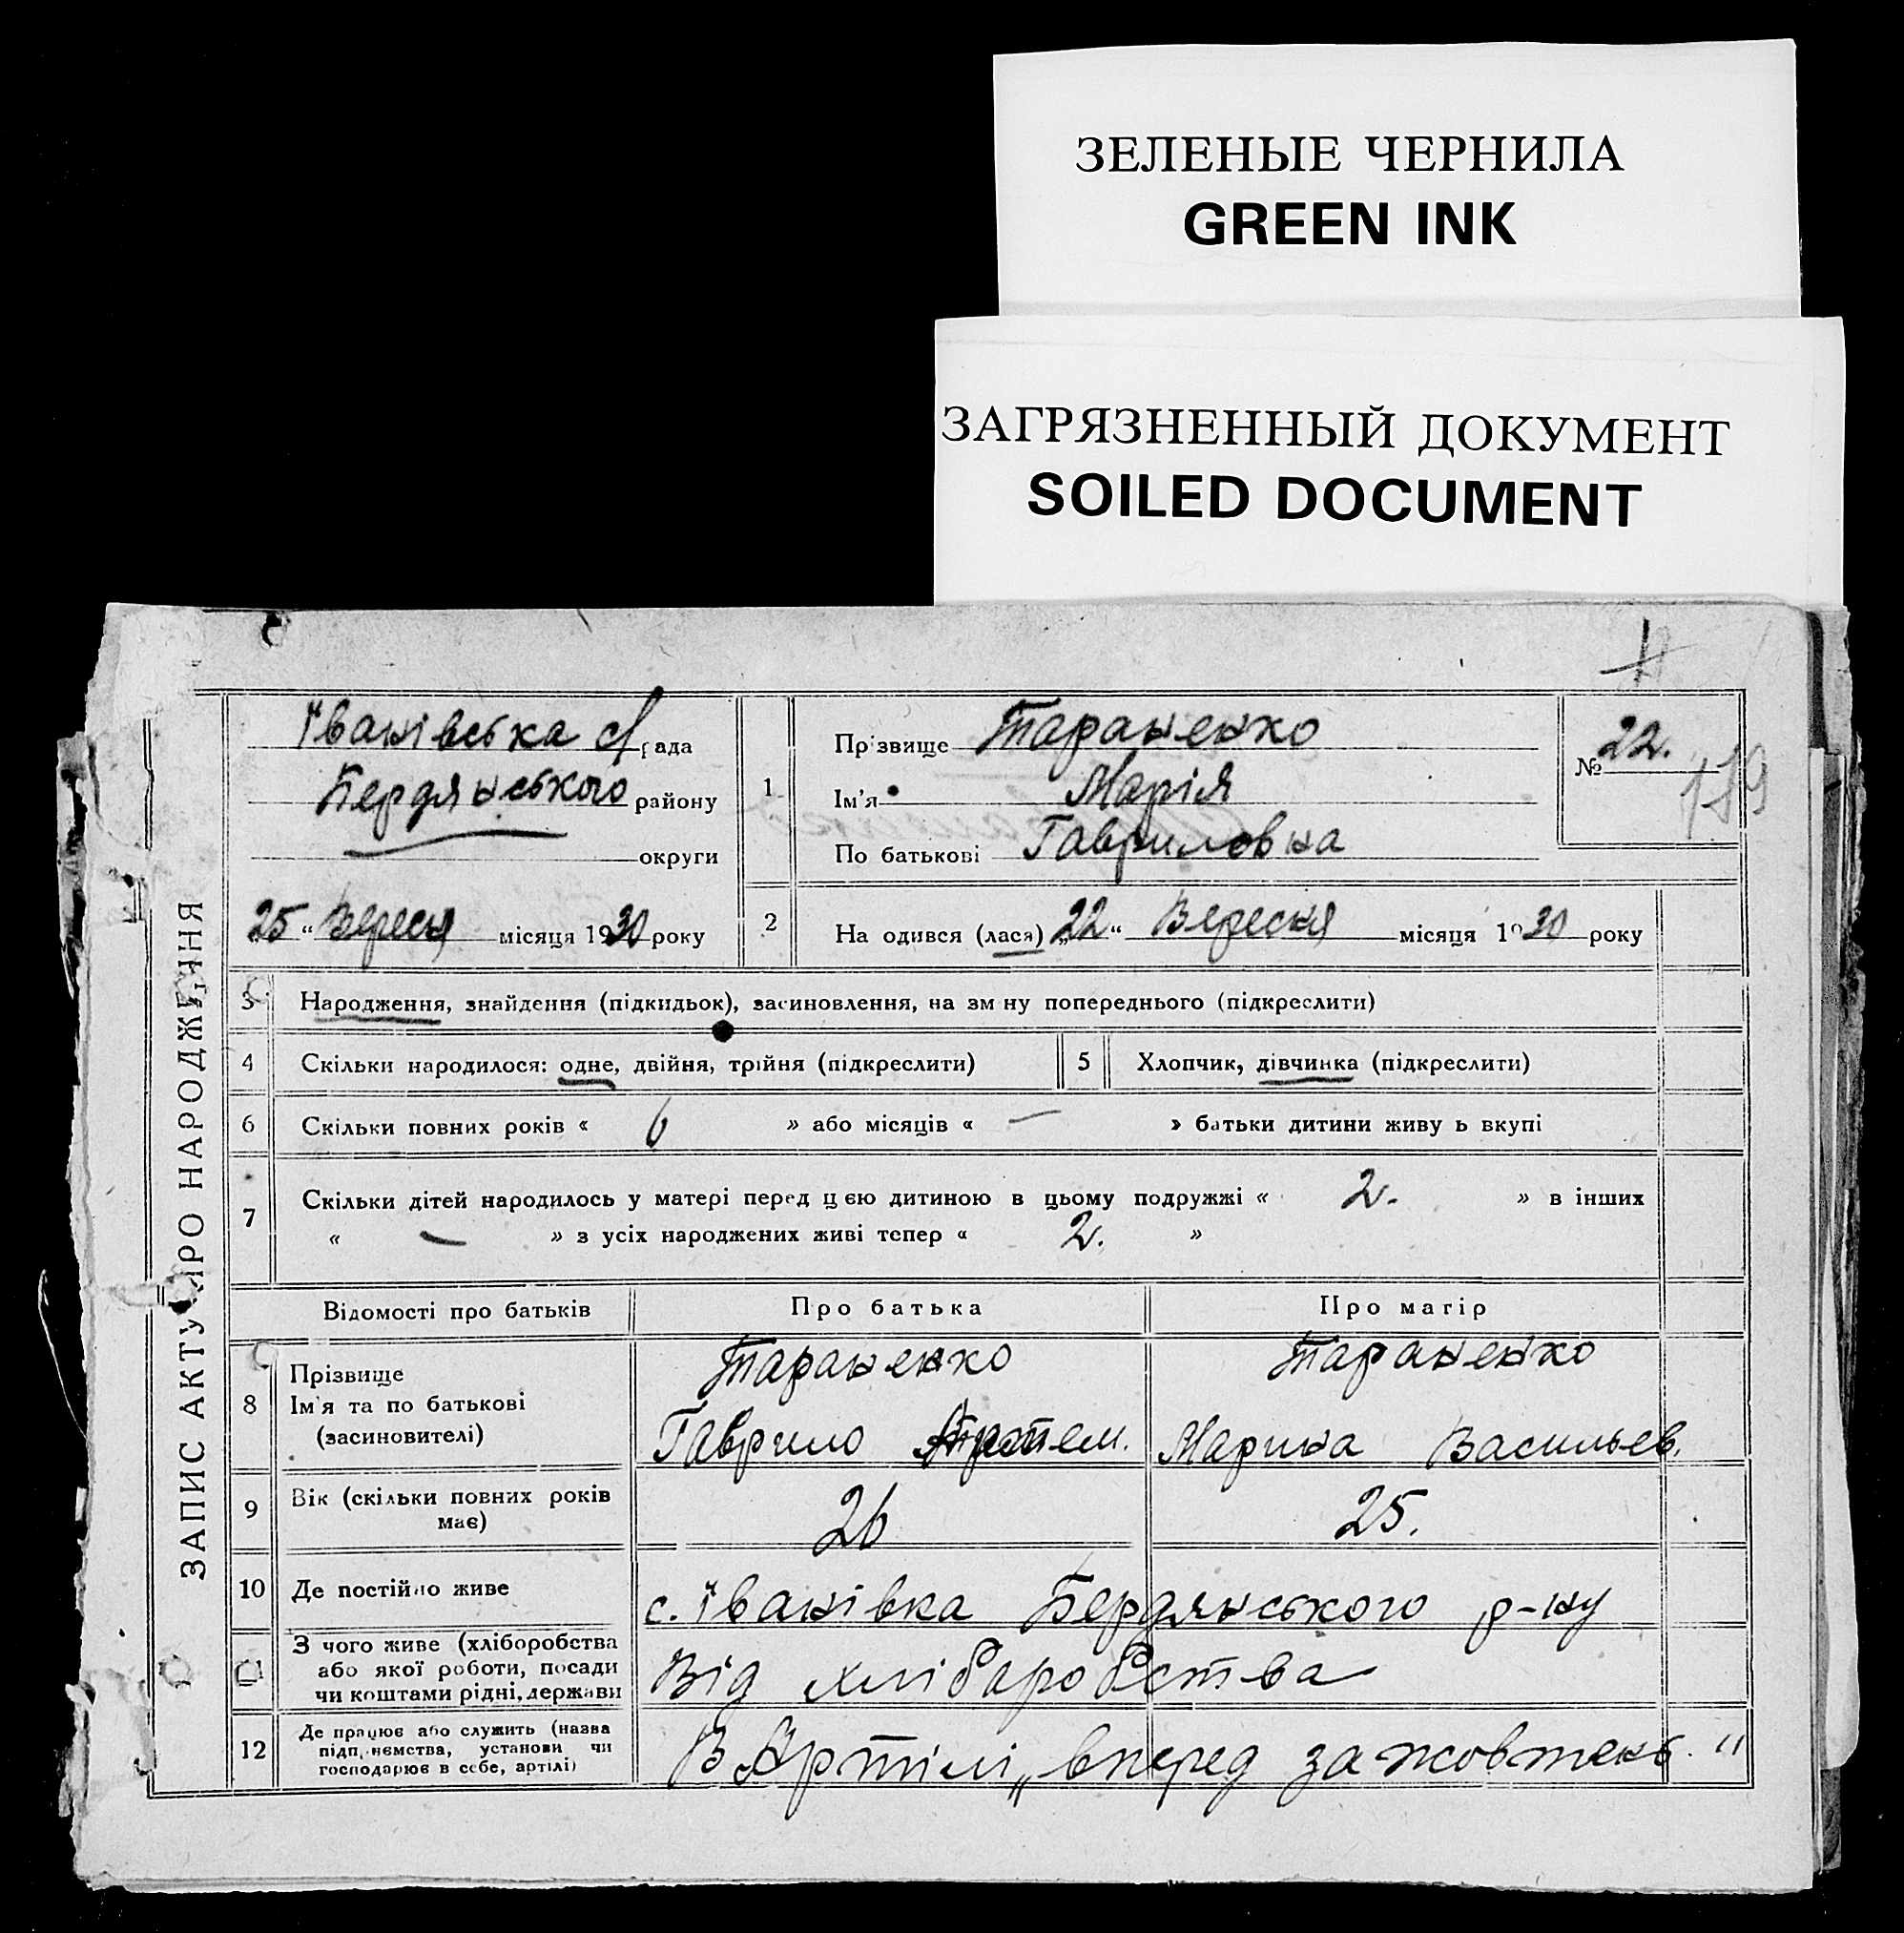 ЗЕЛЕНЫЕ ЧЕРНИЛА
GREEN INK
ЗАГРЯЗНЕННЫЙ ДОКУМЕНТ
SOILED DOCUMENT
ЗАПИС АКТУ ПРО НАРОДЖЕННЯ
Іванівська с/рада
Бердянського району
округи
25 " Вересня місяця 1930 року
1 Прізвище Тараненко
Ім'я Марія
По батькові Гавриловна
№ 22.
119
2 На одився (лася) „22" Вересня місяця 1930 року
3 Народження, знайдення (підкидьок), засиновлення, на зм ну попереднього (підкреслити)
4 Скільки народилося: одне, двійня, трійня (підкреслити) 5 Хлопчик, дівчинка (підкреслити)
6 Скільки повних років « 6 » або місяців « — » батьки дитини живу ь вкупі
7 Скільки дітей народилось у матері перед ц єю дитиною в цьому подружжі « 2. » в інших
« — » з усіх народжених живі тепер « 2. »
Відомості про батьків Про батька Про матір
8 Прізвище Тараненко Тараненко
Ім'я та по батькові
(засиновителі) Гаврило Артем. Марина Васильев.
9 Вік (скільки повних років має) 26 25.
10 Де постійно живе с. Іванівка Бердянського р-ну
11 З чого живе (хліборобства
або якої роботи, посади
чи коштами рідні, держави Від хліборобства
12 Де працює або служить (назва
підп иємства, установи чи
господарює в себе, артілі) В Артілі „вперед за жовтень."